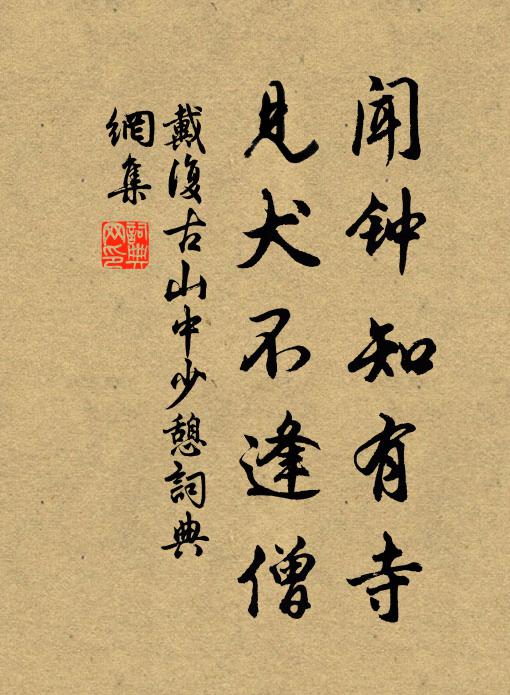 闻钟知有寺
见犬不逢僧
戴復古山中少憩詞典
網集
詞典
网印